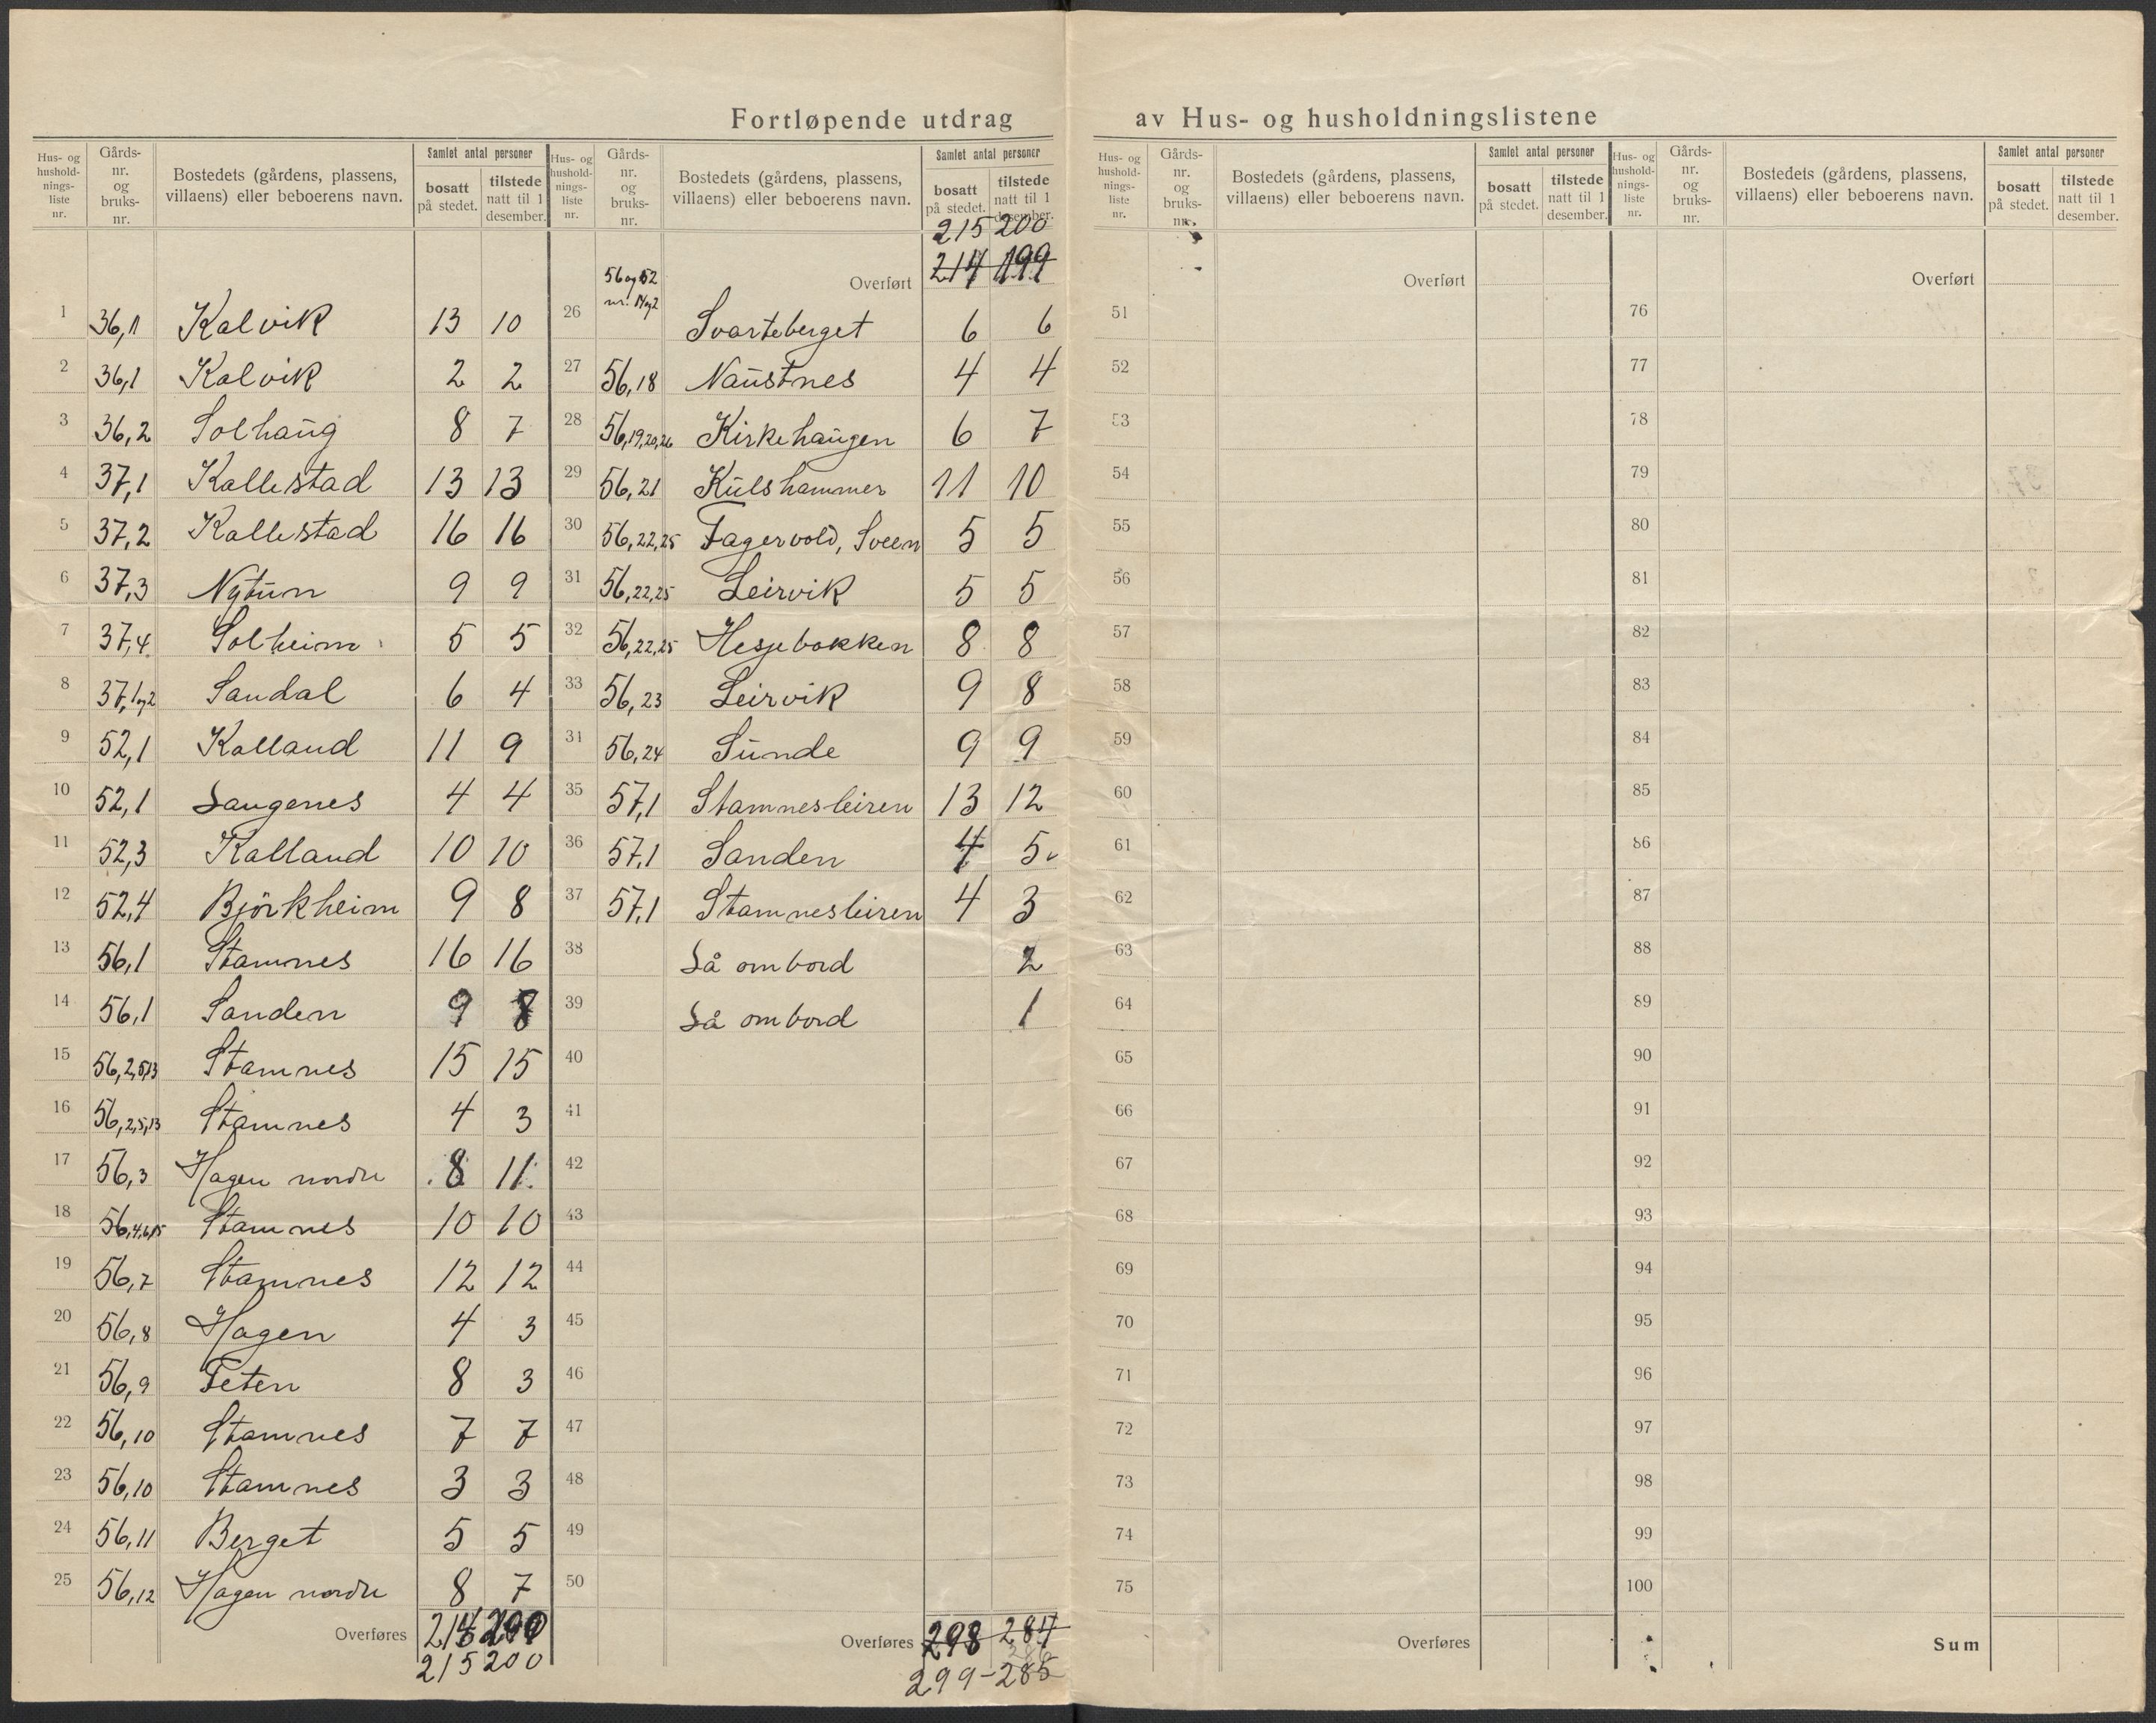 Fortløpende utdrag av Hus- og husholdningslistene
Hus- og hushold- nings- liste nr. Gårds- nr. og bruks- nr. Bostedets (gårdens, plassens, villaens) eller beboerens navn. Samlet antal personer bosatt på stedet. tilstede natt til 1 desember.
1 36,1 Kalvik 13 10
2 36,1 Kalvik 2 2
3 36,2 Solhaug 8 7
4 37,1 Kallestad 13 13
5 37,2 Kallestad 16 16
6 37,3 Nytun 9 9
7 37,4 Solheim 5 5
8 37,1og2 Sandal 6 4
9 52,1 Kalland 11 9
10 52,1 Langenes 4 4
11 52,3 Kalland 10 10
12 52,4 Björkheim 9 8
13 56,1 Stamnes 16 16
14 56,1 Sanden 9 8
15 56,2,5,13 Stamnes 15 15
16 56,2,5,13 Stamnes 4 3
17 56,3 Hagen nordre 8 11
18 56,4,6,15 Stamnes 10 10
19 56,7 Stamnes 12 12
20 56,8 Hagen 4 3
21 56,9 Teten 8 3
22 56,10 Stamnes 7 7
23 56,10 Stamnes 3 3
24 56,11 Berget 5 5
25 56,12 Hagen nordre 8 7
Overføres
215 200
Hus- og hushold- nings- liste nr. Gårds- nr. og bruks- nr. Bostedets (gårdens, plassens, villaens) eller beboerens navn. Samlet antal personer bosatt på stedet. tilstede natt til 1 desember.
215 200
Overført 214 199
26 56 og 52 nr. 14og2 Svarteberget 6 6
27 56,18 Naustnes 4 4
28 56,19,20,26 Kirkehaugen 6 7
29 56,21 Kulshammer 11 10
30 56,22,25 Fagervold, Sveen 5 5
31 56,22,25 Leirvik 5 5
32 56,22,25 Hesjebakken 8 8
33 56,23 Leirvik 9 8
34 56,24 Sunde 9 9
35 57,1 Stamnesleiren 13 12
36 57,1 Sanden 4 5
37 57,1 Stamnesleiren 4 3
38 Lå ombord 2
39 Lå ombord 1
40
41
42
43
44
45
46
47
48
49
50
Overføres 298 284
299-285
Hus- og hushold- nings- liste nr. Gårds- nr. og bruks- nr. Bostedets (gårdens, plassens, villaens) eller beboerens navn. Samlet antal personer bosatt på stedet. tilstede natt til 1 desember.
Overført
51
52
53
54
55
56
57
58
59
60
61
62
63
64
65
66
67
68
69
70
71
72
73
74
75
Overføres
Hus- og hushold- nings- liste nr. Gårds- nr. og bruks- nr. Bostedets (gårdens, plassens, villaens) eller beboerens navn. Samlet antal personer bosatt på stedet. tilstede natt til 1 desember.
Overført
76
77
78
79
80
81
82
83
84
85
86
87
88
89
90
91
92
93
94
95
96
97
98
99
100
Sum